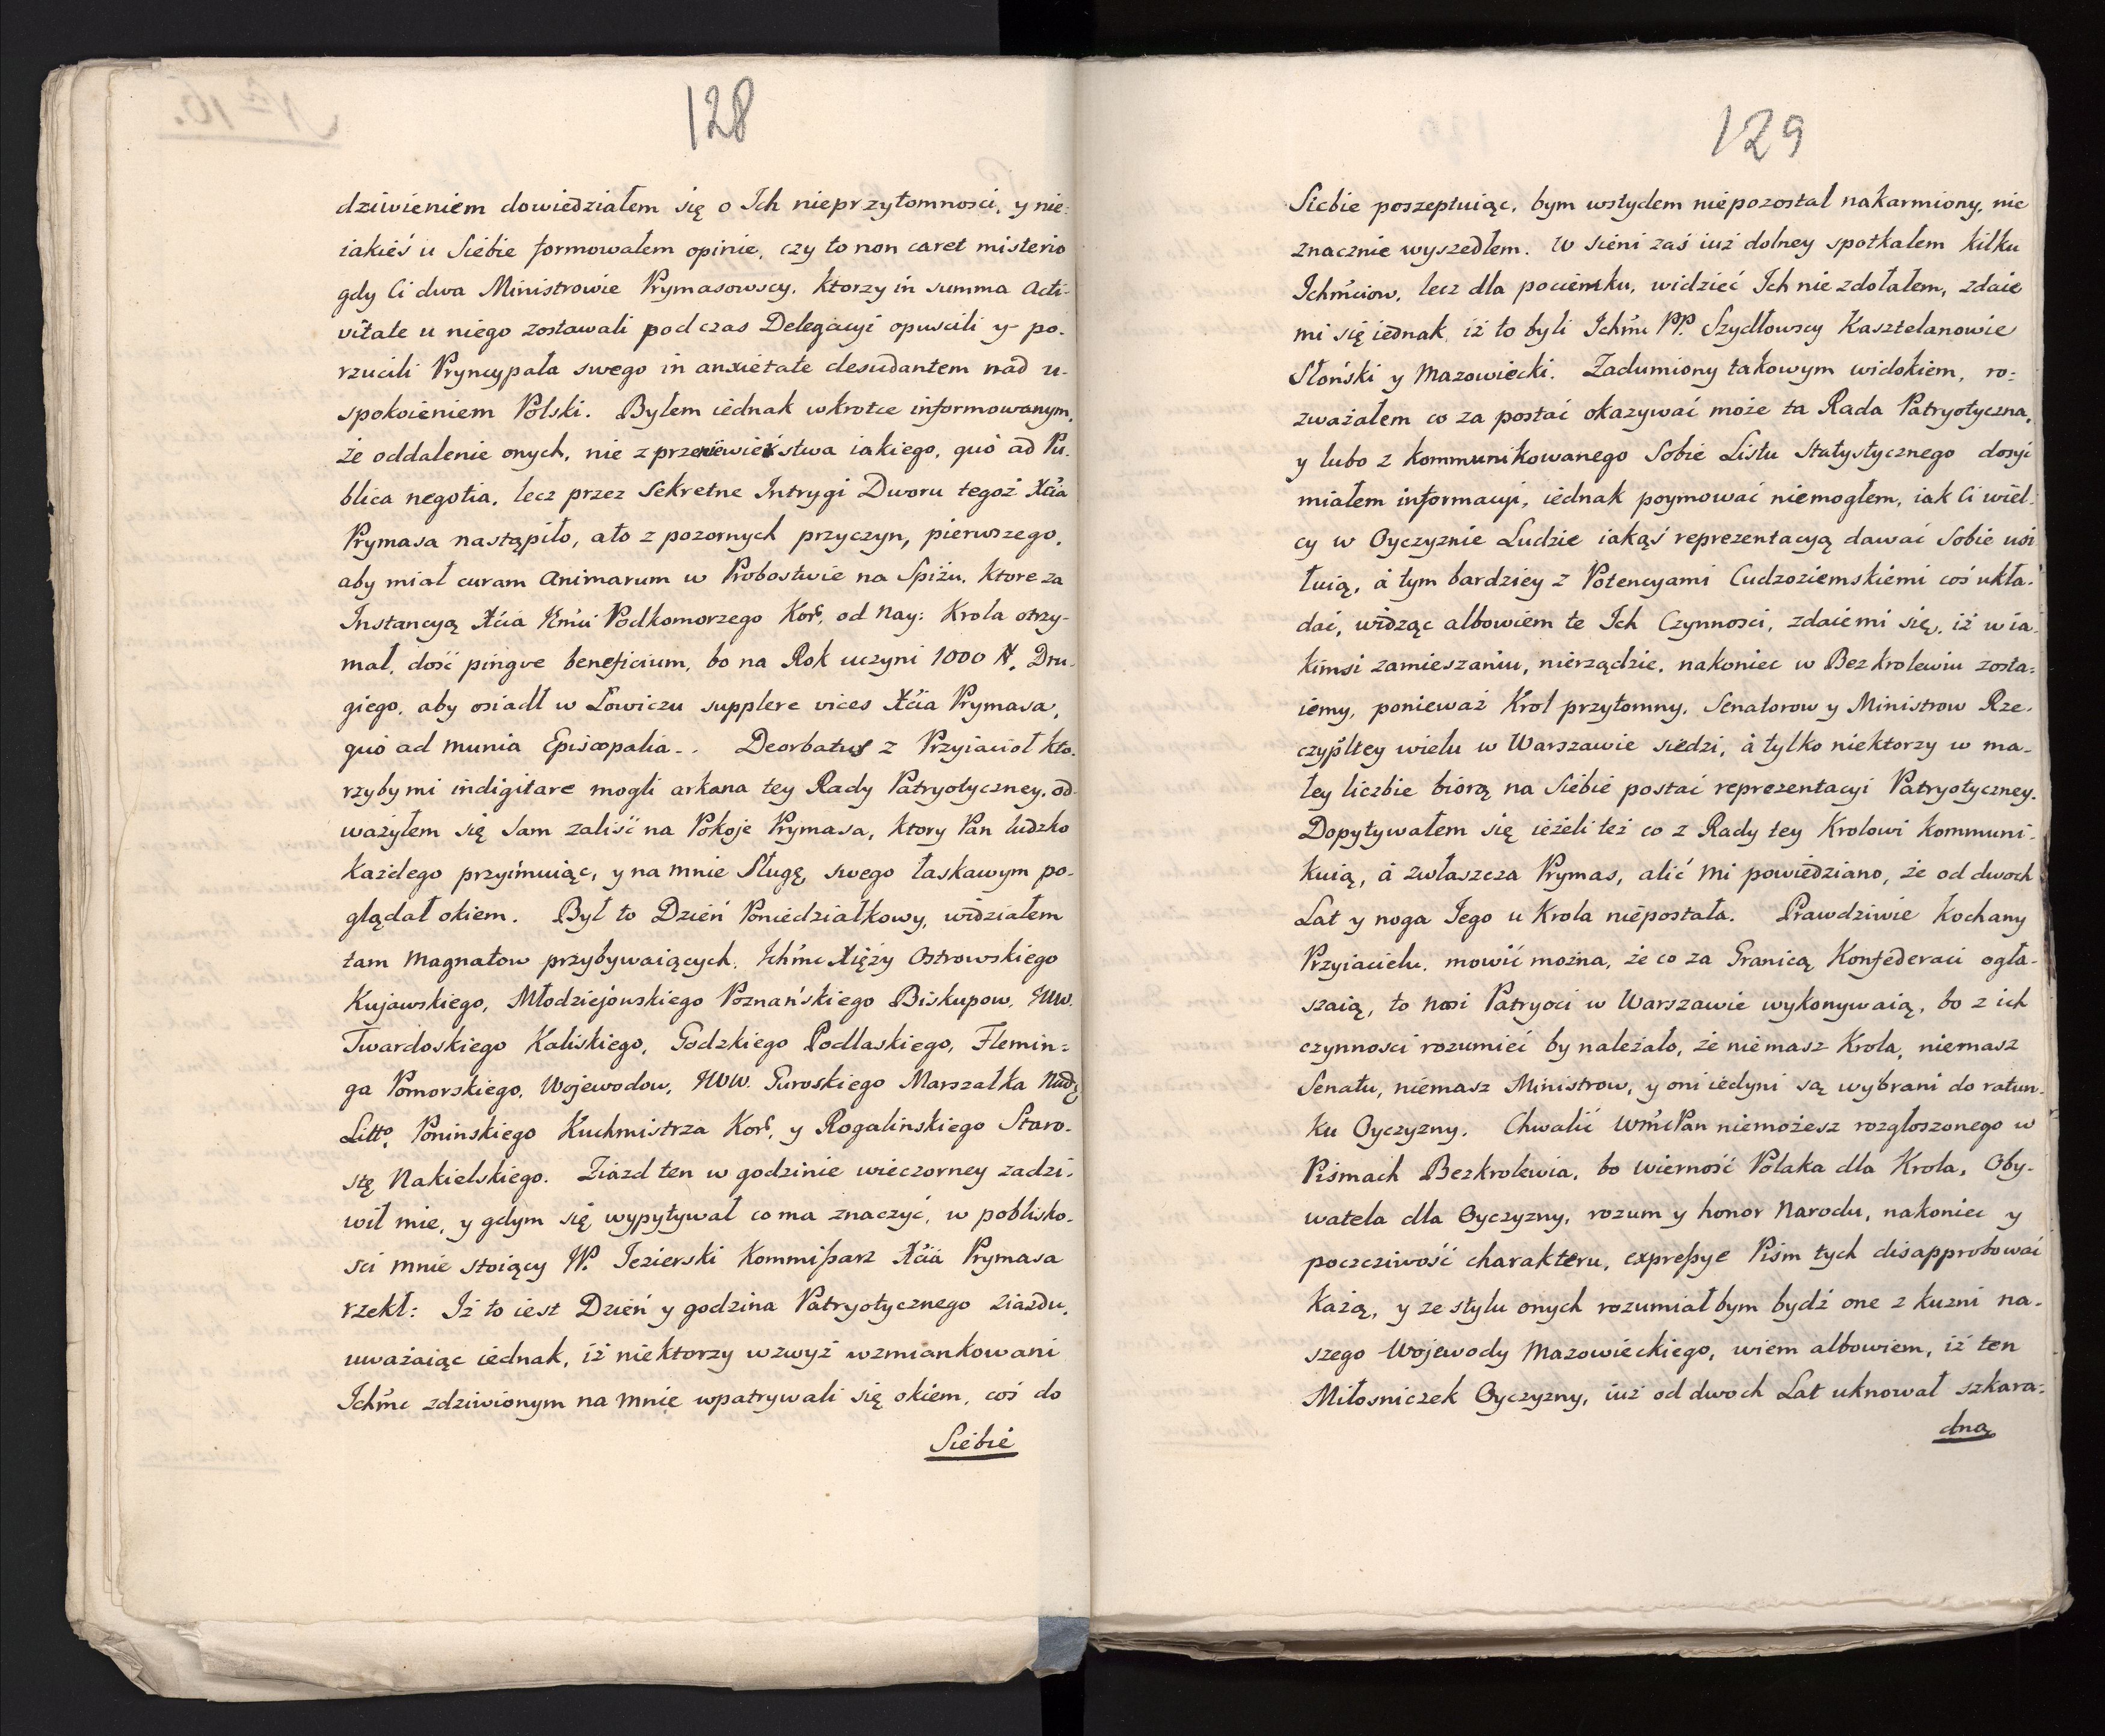 128
dziwieniem dowiedziałem się o Ich nieprzytomnosci, y nie:
iakieś u Siebie formowałem opinie, czy to non caret misterio
gdy Ci dwa Ministrowie Prymasowscy, ktorzy in summa Acti-
vitate u niego zostawali podczas Delegacyi opuscili y po-
rzucili Pryncypała swego in anxietate desudantem nad u-
spokoieniem Polski. Byłem iednak wkrotce informowanym,
że oddalenie onych, nie z przeniewierstwa iakiego, quò ad Pu-
blica negotia, lecz przez Sekretne Intrygi Dworu tegoż Xcia
Prymasa nastąpiło, a to z pozornych przyczyn, pierwszego,
aby miał curam Animarum w Probostwie na Spiżu, ktore za
Instancyą Xcia Jmci Podkomorzego Kor, od Nay: Krola otrzy-
mał, dość pingve beneficium, bo na Rok uczyni 1000 #. Dru-
giego, aby osiadł w Łowiczu supplere vices Xcia Prymasa,
quò ad munia Episcopalia.. Deorbatus z Przyiacioł kto-
rzyby mi indigitare mogli arkana tey Rady Patryotyczney, od-
ważyłem się sam zaliść na Pokoje Prymasa, ktory Pan ludzko
każdego przyimuiąc, y na mnie Sługę swego łaskawym po-
glądał okiem. Był to Dzień Poniedziałkowy, widziałem
tam Magnatow przybywaiących, Ichmc Xięży Ostrowskiego
Kujawskiego, Młodziejowskiego Poznańskiego Biskupow, JWW.
Twardoskiego Kaliskiego, Godzkiego Podlaskiego, Flemin=
ga Pomorskiego, Wojewodow, JWW. Guroskiego Marszałka Nadę
Litto, Poninskiego Kuchmistrza Kor, y Rogalinskiego Staro-
stę Nakielskiego. Ziazd ten w godzinie wieczorney zadzi-
wił mie, y gdym się wypytywał co ma znaczyć, w poblisko-
sci mnie stoiący W. Jezierski Kommißarz Xcia Prymasa
rzekł: Iż to iest Dzień y godzina Patryotycznego Ziazdu,
uważaiąc iednak, iż niektorzy wzwyż wzmiankowani
Ichmc zdziwionym na mnie wpatrywali się okiem, coś do
Siebie
129
Siebie poszeptuiąc, bym wstydem niepozostal nakarmiony, nie
znacznie wyszedłem. W sieni zaś iuż dolney spotkałem kilku
Ichmciow, lecz dla pociemku, widzieć Ich nie zdołałem, zdaie
mi się iednak, iż to byli Ichmc PP. Szydłowscy Kasztelanowie
Słoński y Mazowiecki. Zadumiony takowym widokiem, ro:
zważałem co za postać okazywać może ta Rada Patryotyczna,
y lubo z kommunikowanego Sobie Listu Statystycznego dosyć
miałem informacyi, iednak poymować niemogłem, iak Ci wiel-
cy w Oyczyznie Ludzie iakąś reprezentacyą dawać Sobie usi
łuią, à tym bardziey z Potencyami Cudzoziemskiemi coś ukła-
dai, widząc albowiem te Ich Czynnosci, zdaie mi się, iż w ia-
kimsi zamieszaniu, nierządzie, nakoniec w Bezkrolewiu zosta=
iemy, ponieważ Krol przytomny, Senatorow y Ministrow Rze-
czypltey wielu w Warszawie siedzi, à tylko niektorzy w ma-
łey liczbie biorą na Siebie postać reprezentacyi Patryotyczney.
Dopytywałem się ieżeli też co z Rady tey Krolowi kommuni-
kuią, à zwłaszcza Prymas, alić mi powiedziano, że od dwoch
Lat y noga Jego u Krola niepostała. Prawdziwie kochany
Przyiacielu, mowić można, że co za Granicą Konfederaci ogła-
szaią, to nasi Patryoci w Warszawie wykonywaią, bo z ich
czynnosci rozumieć by należało, że niemasz Krola, niemasz
Senatu, niemasz Ministrow, y oni iedyni są wybrani do ratun-
ku Oyczyzny. Chwalić WmcPan niemożesz rozgłoszonego w
Pismach Bezkrolewia, bo wierność Polaka dla Krola, Oby-
watela dla Oyczyzny, rozum y honor Narodu, nakoniec y
poczciwość charakteru, expreßye Pism tych disapprobować
każą, y ze stylu onych rozumiałbym bydź one z kuzni na-
szego Wojewody Mazowieckiego, wiem albowiem, iż ten
Miłosniczek Oyczyzny, iuż od dwoch Lat uknował szkara=
dną